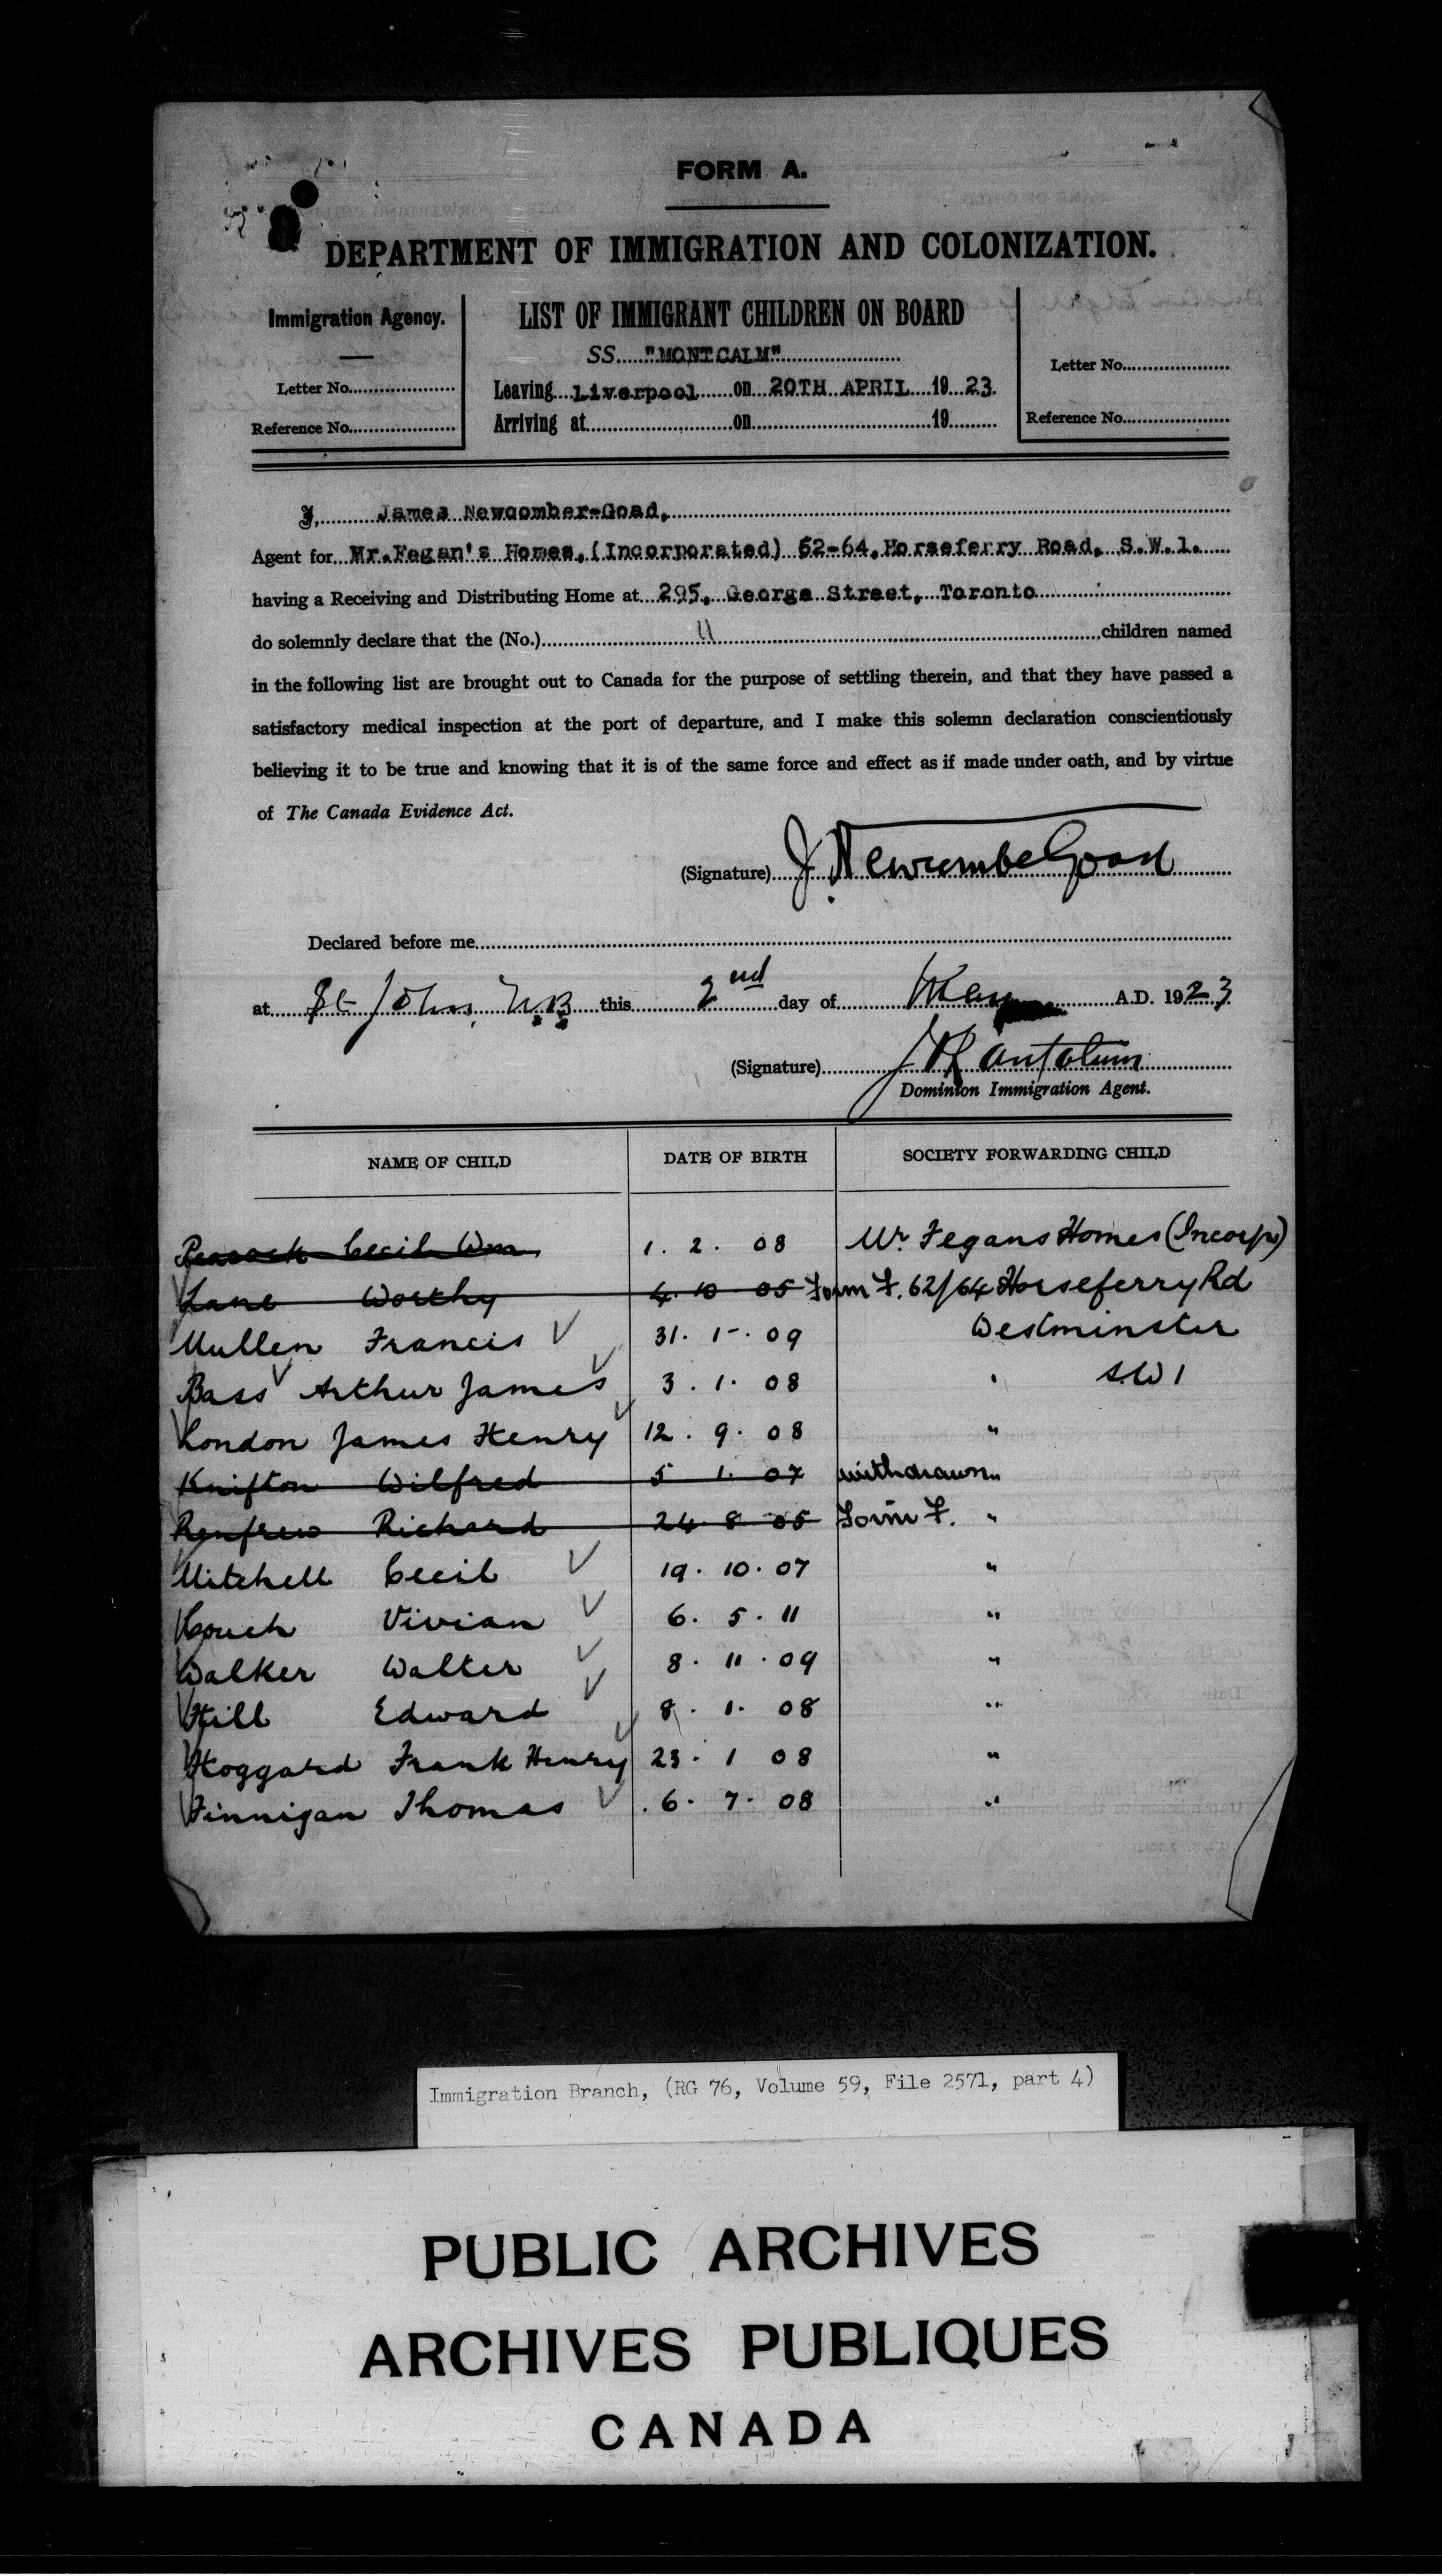 FORM A.
DEPARTMENT OF IMMIGRATION AND COLONIZATION.
Immigration Agency.
Letter No.
Reference No.
LIST OF IMMIGRANT CHILDREN ON BOARD
SS "MONTCALM"
Leaving Liverpool on 20TH APRIL 19 23.
Arriving at on 19
Letter No.
Reference No.
I, James Newcomber-Goad,
Agent for Mr.Fegan's Homes,(Incorporated) 62-64,Horseferry Road, S.W.1.
having a Receiving and Distributing Home at 295, George Street, Toronto
do solemnly declare that the (No.) 11 children named
in the following list are brought out to Canada for the purpose of settling therein, and that they have passed a
satisfactory medical inspection at the port of departure, and I make this solemn declaration conscientiously
believing it to be true and knowing that it is of the same force and effect as if made under oath, and by virtue
of The Canada Evidence Act.
(Signature) J. Newcombe Goad
Declared before me
at St John, N.B this 2nd day of May A.D. 1923
(Signature)
Dominion Immigration Agent.
NAME OF CHILD DATE OF BIRTH SOCIETY FORWARDING CHILD
Peacock Cecil Wm. 1. 2. 08 Mr. Fegans Homes (Incorp)
Lane Worthy 4. 10 05 Form F. 62/64 Horseferry Rd
Mullen Francis 31. 1. 09 Westminster
Bass Arthur James 3. 1. 08 " S.W 1
London James Henry 12. 9. 08 "
Knifton Wilfred 5 1. 07 withdrawn "
Renfrew Richard 24. 8 05 Form F. "
Mitchell Cecil 19. 10. 07 "
Couch Vivian 6. 5. 11 "
Walker Walter 8. 11. 09 "
Hill Edward 8. 1. 08 "
Hoggard Frank Henry 23. 1 08 "
Finnigan Thomas 6. 7. 08 "
Immigration Branch, (RG 76, Volume 59, File 2571, part 4)
PUBLIC ARCHIVES
ARCHIVES PUBLIQUES
CANADA